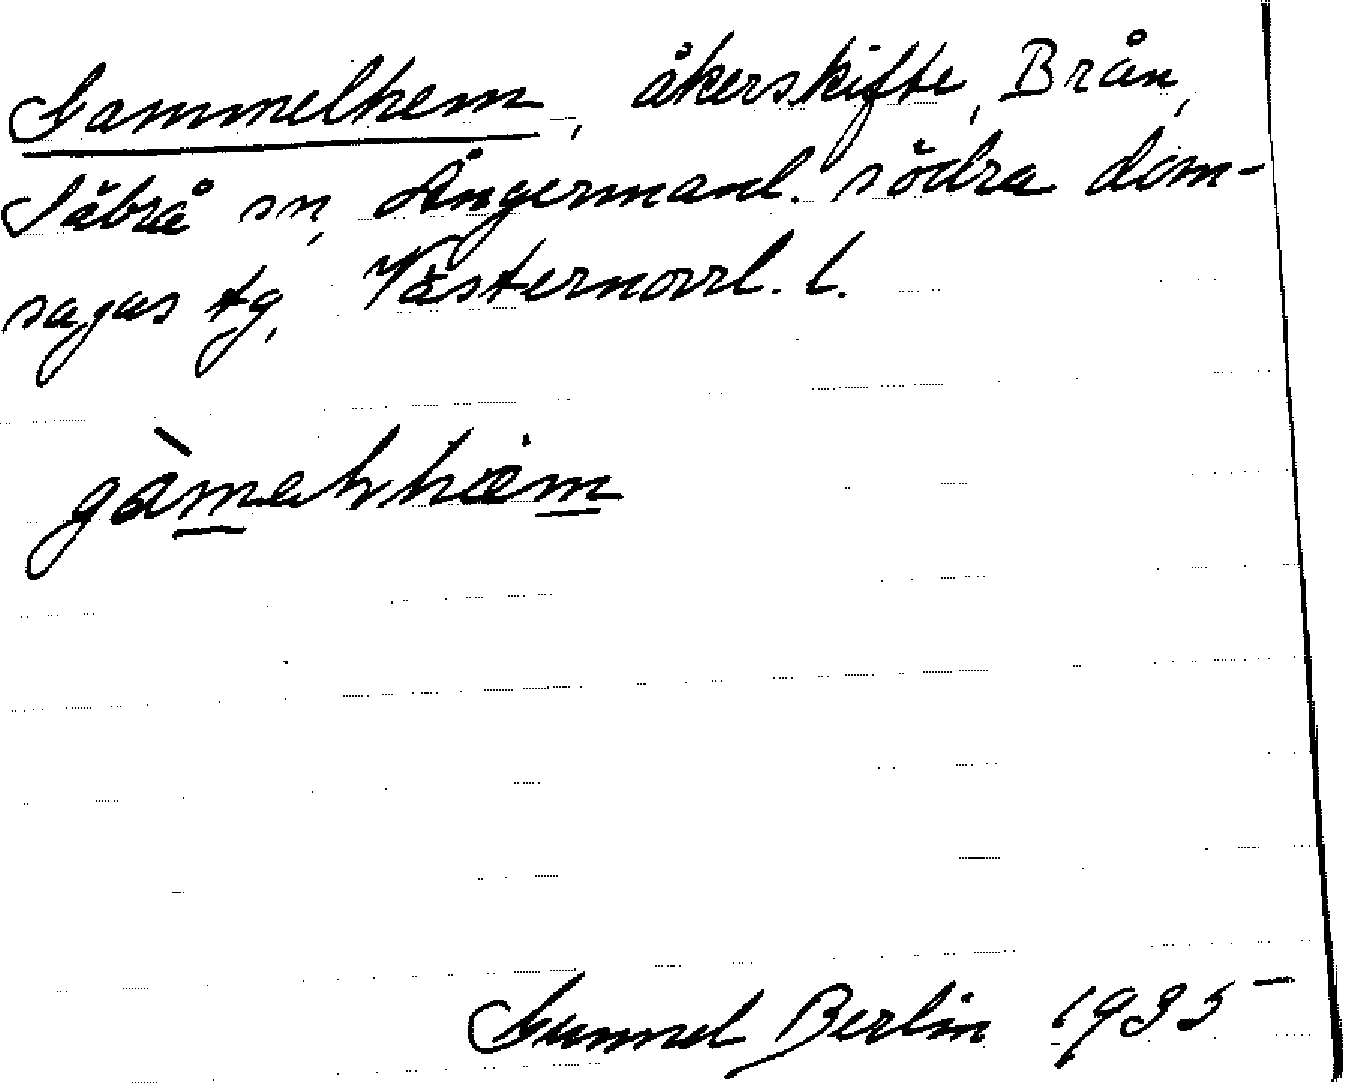 Gammelhem, åkerskifte, Brån,
Säbrå sn, Ångermanl. södra dom-
sagas tg, Västernorrl. l.
gàmalhæm
Gunnel Berlin 1935